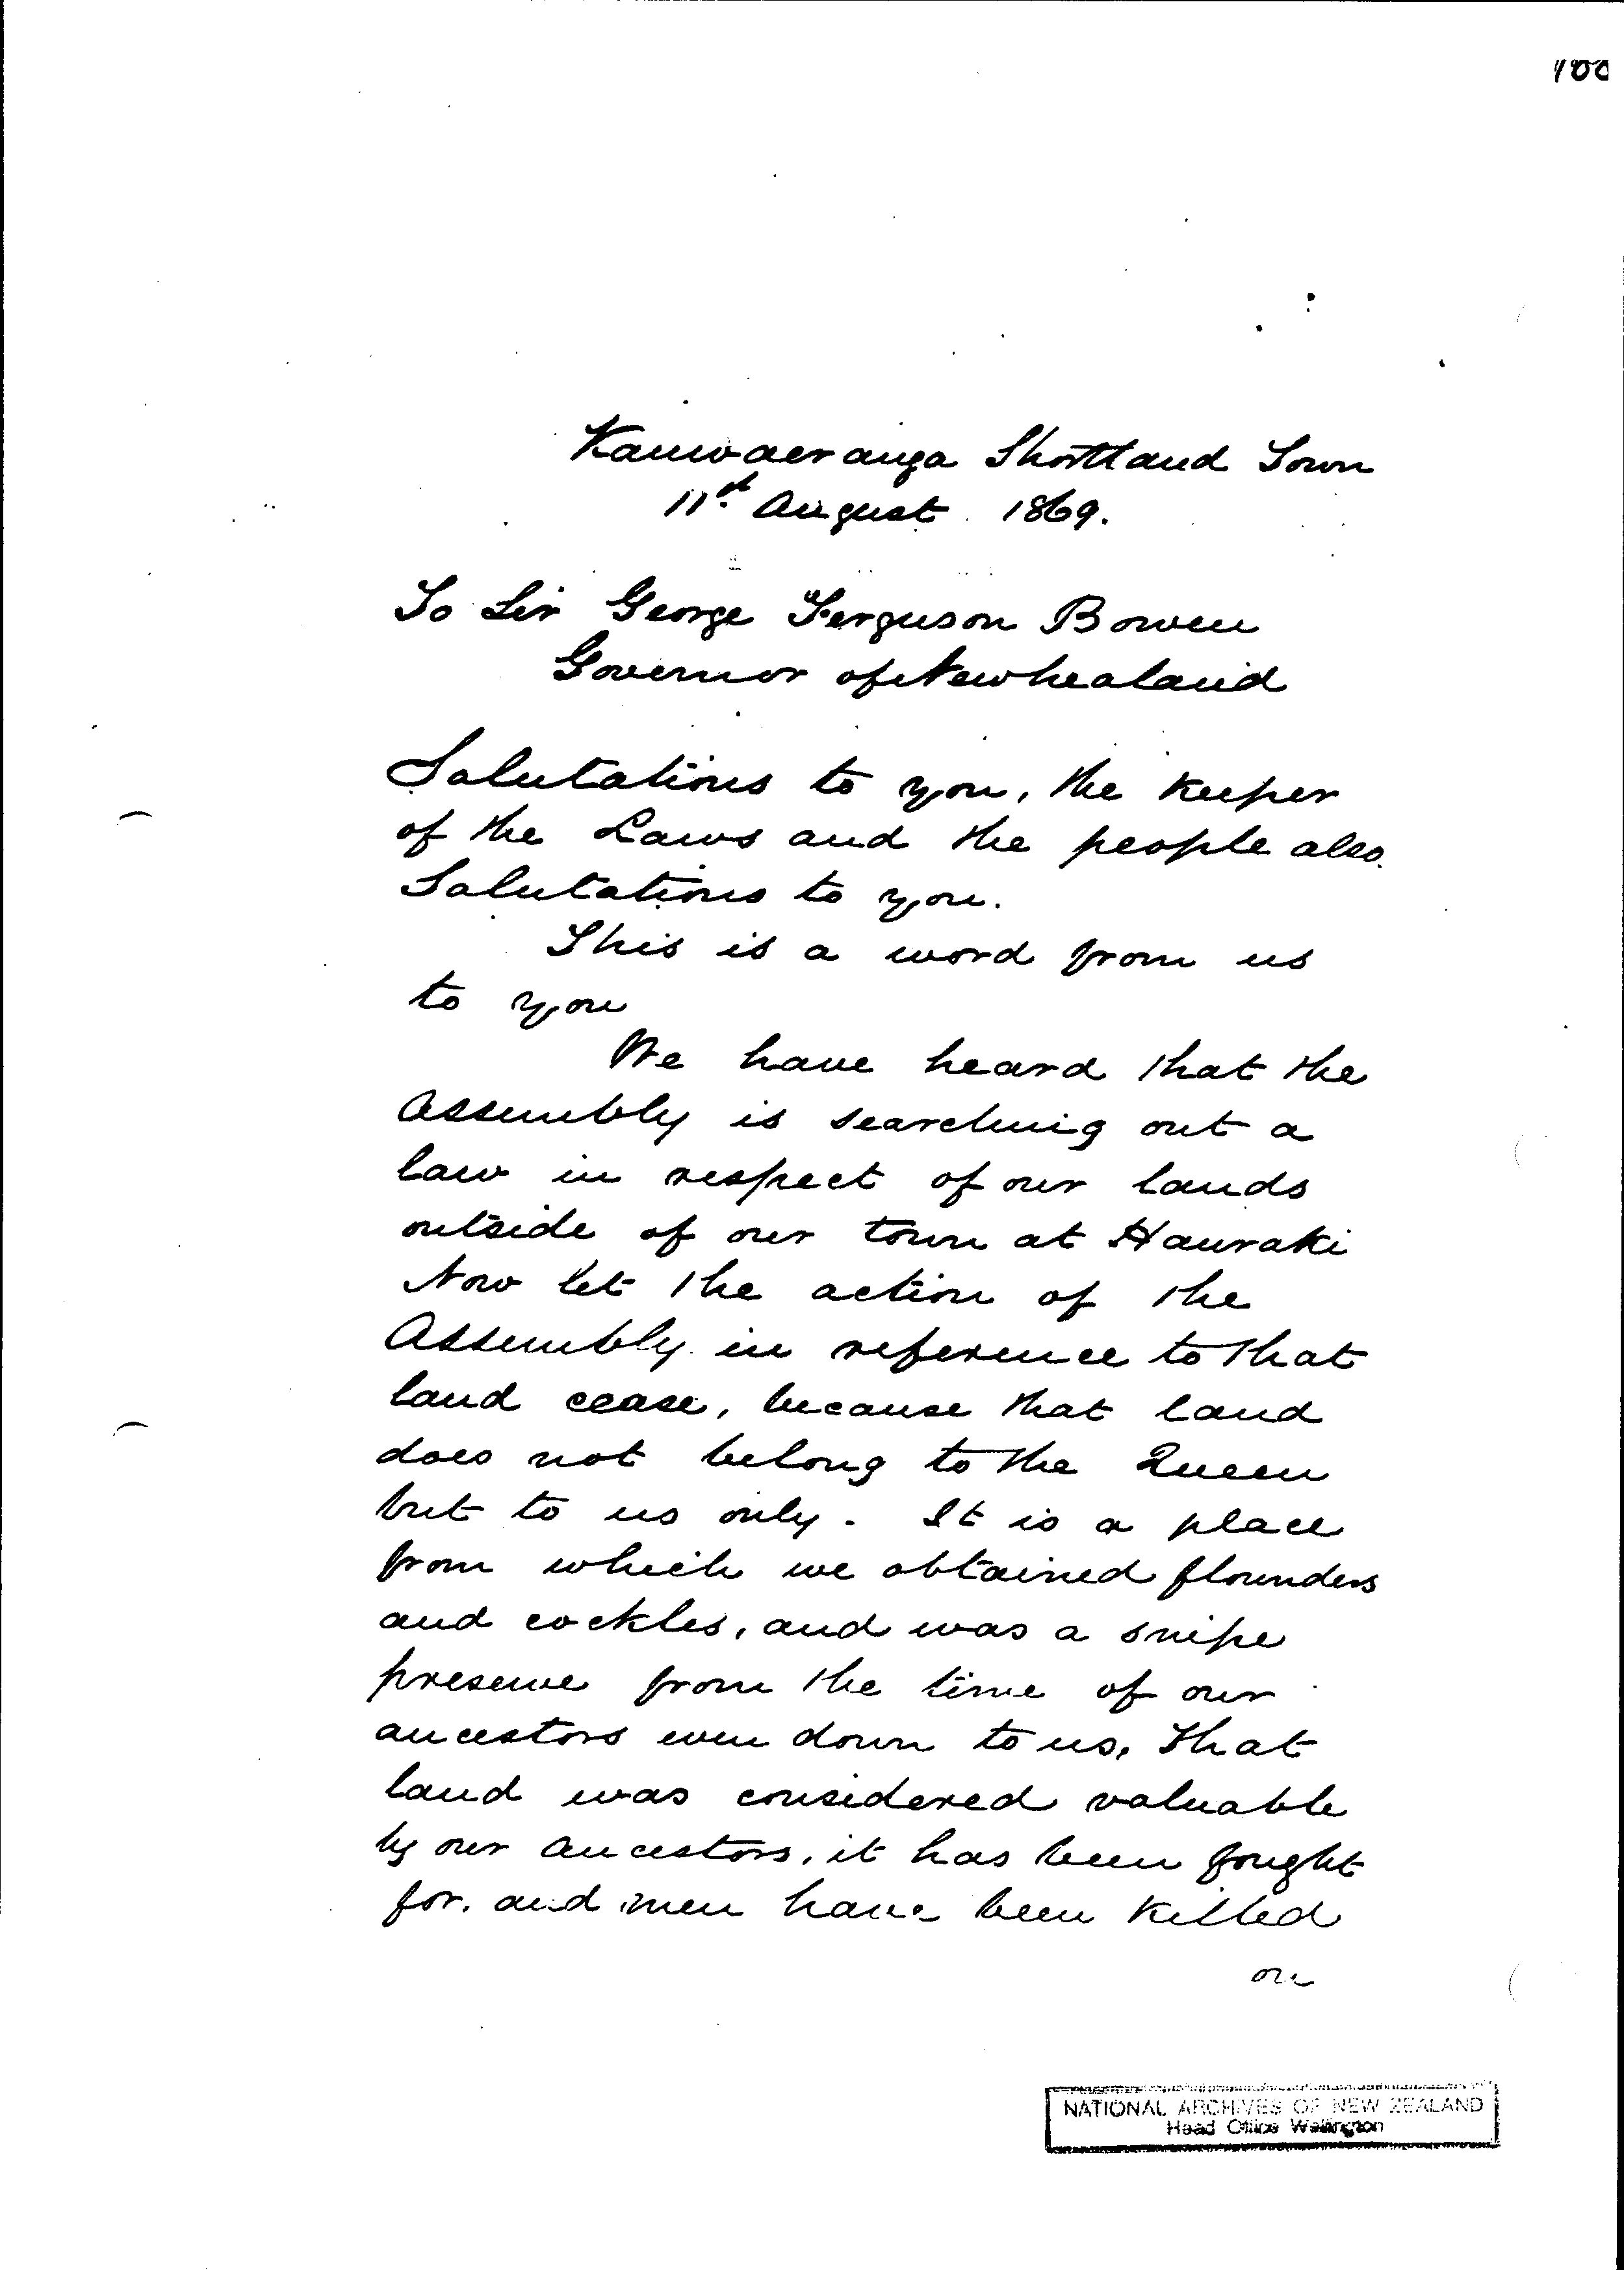 100
Kauwaeranga Shortland Town
11th August 1869.
To Sir George Ferguson Bowen
Governor of New Zealand
Salutations to you, the keeper
of the Laws and the people also.
Salutations to you.
This is a word from us
to you
We have heard that the
Assembly is searching out a
law in respect of our lands
outside of our town at Hauraki
Now let the action of the
Assembly in reference to that
land cease, because that land
does not belong to the Queen
but to us only. It is a place
from which we obtained flounders
and cockles, and was a snipe
preserve from the time of our
ancestors even down to us, that
land was considered valuable
by our ancestors, it has been fought
for, and men have been killed
on
NATIONAL ARCHIVES OF NEW ZEALAND
Head Office Wellington